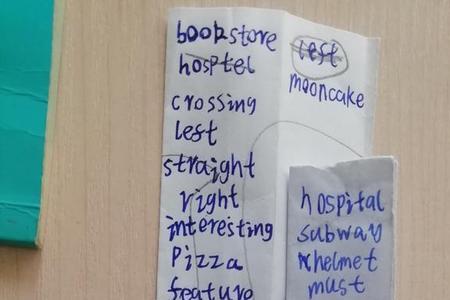 bookstore
hosptel
crossing
lest
straight
right
interesting
pizza
feature
lest
mooncake
hospital
subway
helmet
must